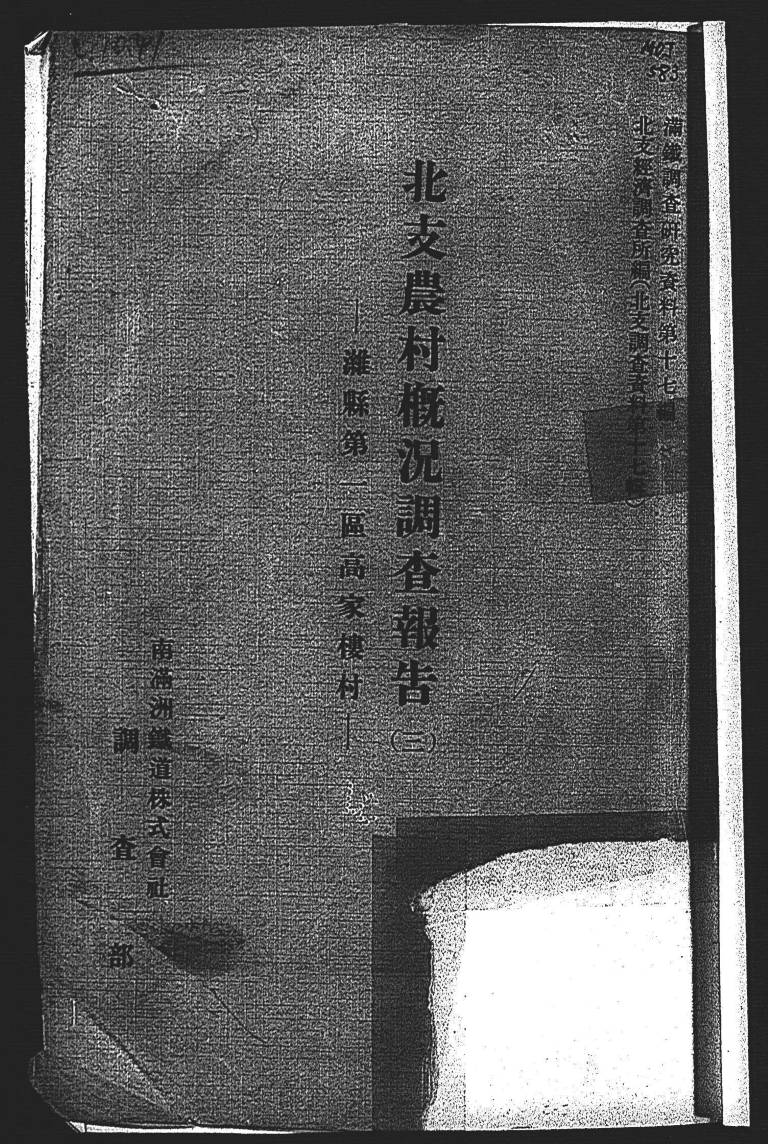 滿鐵調査研究資料第十七編
北支經濟調査所編（北支調査資料第十七輯）
北支農村概況調査報告（三）
―濰縣第一區高家樓村―
南滿洲鐵道株式會社
調査部